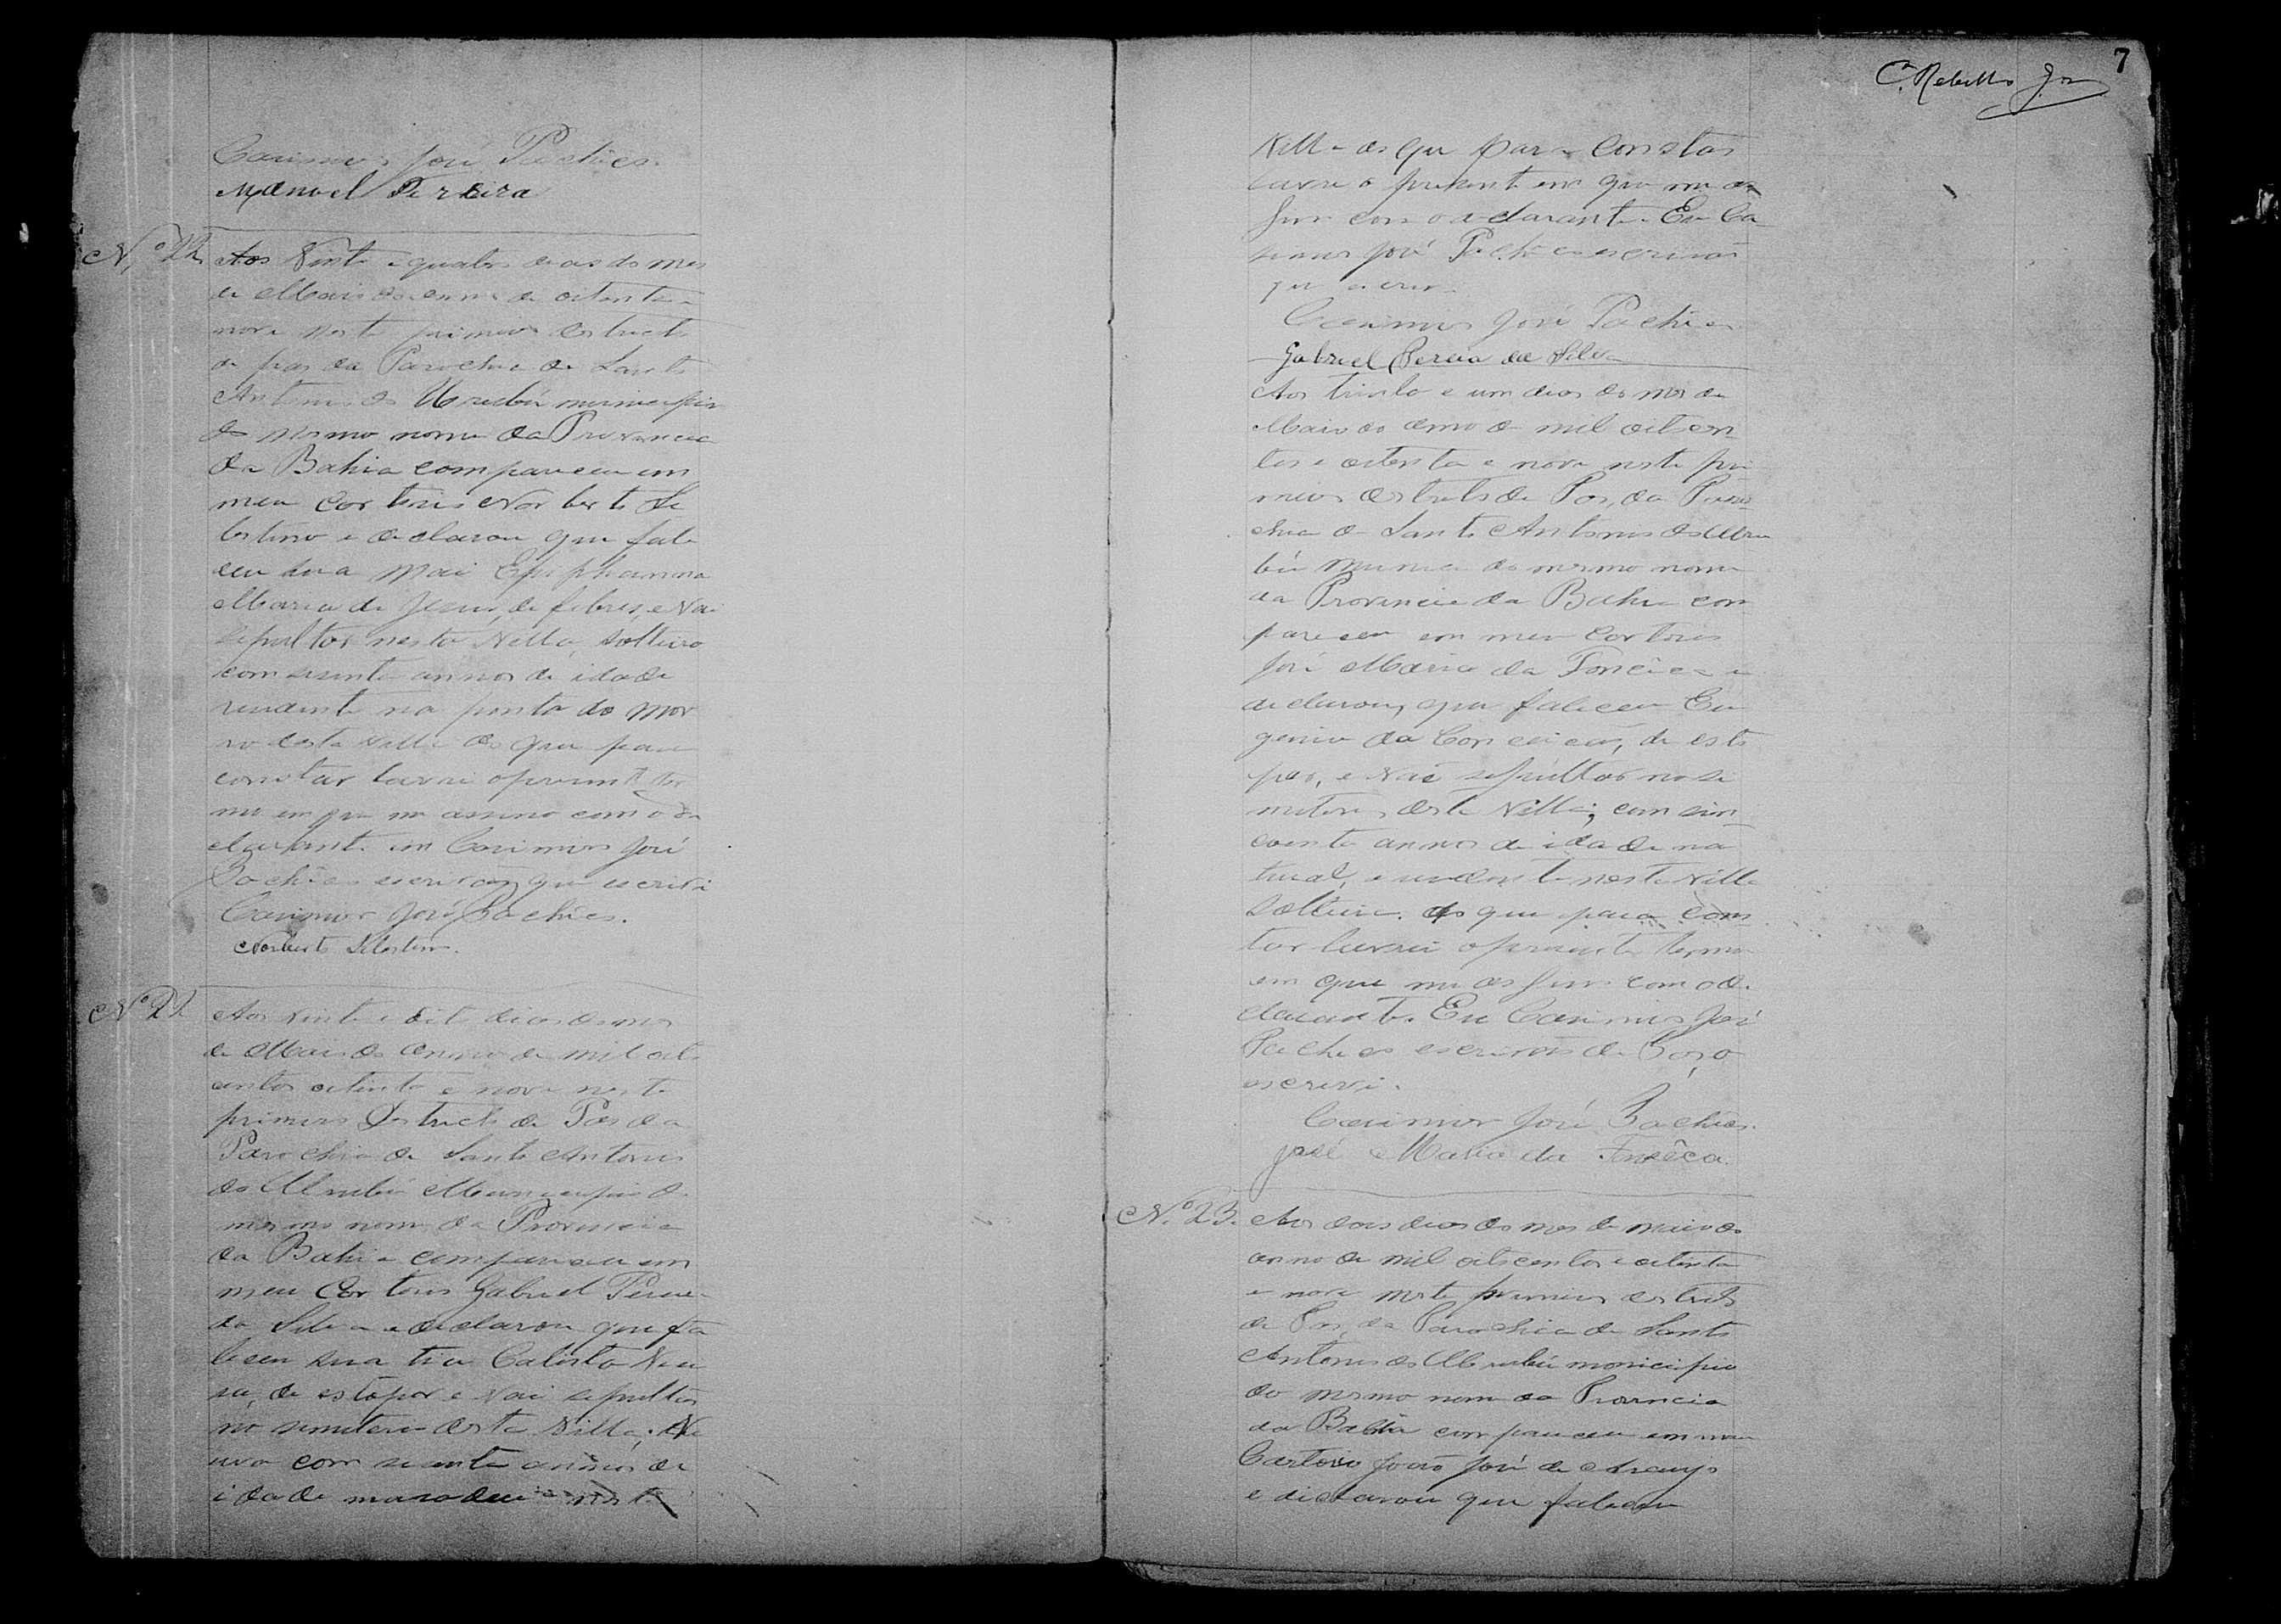 Casimiro José Pachêco.
Manoel Pereira
Nº 22 Aos Vinte e quatro dias do mes
de Maio do anno de oitenta e
nove neste primeiro destricto
de pas da Parochia de Santo
Antonio do Urubú municipio
do mesmo nome da Provencia
da Bahia compareceu em
meu cartorio Norberto Se
lestino e declarou que fale
ceu sua Mai Epiphania
Maria de Jesus, de febres, e Vai
sepultar nesta Villa, solteira
com secenta annos de idade
rendente na ponta do mor
ro desta Villa do que para
constar lavrei o presente ter
mo em que me assino com o de
clarante eu Casimiro José
Pachêco escrivão que escrivi
Casimiro José Pachêco.
Norberto Selestino.
Nº 21 Aos vinte e oito dias do mes
de Maio do anno de mil oito
centos oitenta e nove neste
primeiro Destricto de Pas da
Parochia de Santo Antonio
do Urubú Municipio do
mesmo nome da Provincia
da Bahia compareceu em
meu Cartorio Gabriel Pereira
da Silva e declarou que fa
leceu sua tia Calista
de estopor e Vai sepultar
no semiterio desta Villa,
uva com secenta annos de
idade
7
C. Rebello Jor
Villa do que para constar
lavrei o presente em que me as
signo com o declarante. Eu Ca
simiro José Pachêco escrivão
que escrevi.
Casimiro José Pachêco
Gabriel Pereira da Silva
Aos trinta e um dias do mes de
Maio do anno de mil oitocen
tos e oitenta e nove neste pri
meiro destricto de Pas, da Paro
chia de Santo Antonio do Uru
bú Munici do mesmo nome
da Provincia da Bahia com
pareceu em meu Cartorio
José Maria da Fonsêca e
declarou, que faleceu Eu
genia da Conceicão, de esto
por, e Vai sepultar no se
miterio desta Villa; com sin
coenta annos de idade na
tural, e residente nesta Villa
solteira. do que para cons
tar lavrei o presente termo
em que me assino com o de
clarante. Eu Casimiro José
Pachêco escrivão de Paz, o
escrevi.
Casimiro José Pachêco.
José Maria da Fonsêca.
Nº 23. Aos dois dias do mes de maio do
anno de mil oitocentos e oitenta
e nove neste primeiro destricto
de Pas, da Parochia de Santo
Antonio do Urubú municipio
do mesmo nome da Provincia
da Bahia compareceu em meu
Cartorio João José de Araujo
e declarou que faleceu